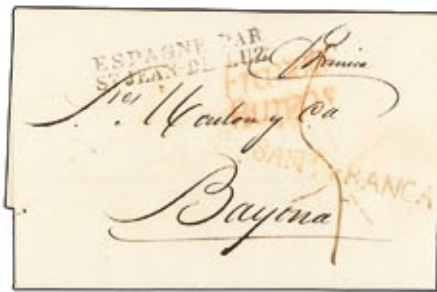 ESPAGNE PAR
ST JEAN-DE-LUZ
Francia
Sres Moulon y Ca
SANT FRANCA
Bayona